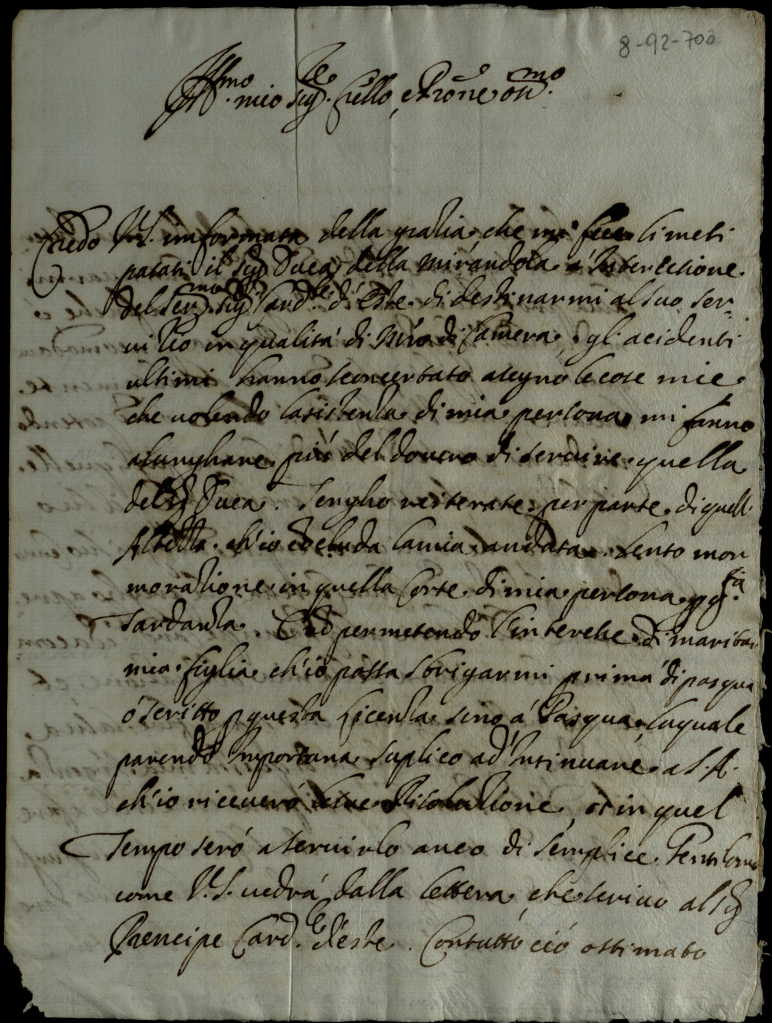 8-92-700
Ill.mo mio Sig.re C.llo, e Prone oss.mo
Credo V.S. imformata della gratia che mi fece li mesi
passati il Sig. Duca della Mirandola a' Intercesione
del Ser.mo Sig. Card.le d'Este di destinarmi al suo ser-
vitio in qualità di Mro di Camera, gl'acidenti
ultimi hanno sconcertato a segno le cose mie
che volendo l'asistenza di mia persona mi fanno
alunghare più del dovere di servire quella
del S. Duca. Tengho reiterate per parte di quell'
Altezza ch'io la mia andata. Sento mor
moratione in quella Corte di mia persona p
Tardanza. permetendo l'interesse di maritar
mia figlia ch'io possa sbrigarmi prima di pasqua
ò scritto p questa licenza sino a' Pasqua, la quale
parendo Importuna suplico ad' Insinuare a S.A.
ch'io riceverò Risolutione, et in quel
Tempo serò a servirlo anco di semplice Gentilomo
come V.S. vedrà dalla lettera che scrivo al Sig
Prencipe Card.le d'Este. Contuttò ciò ostimato